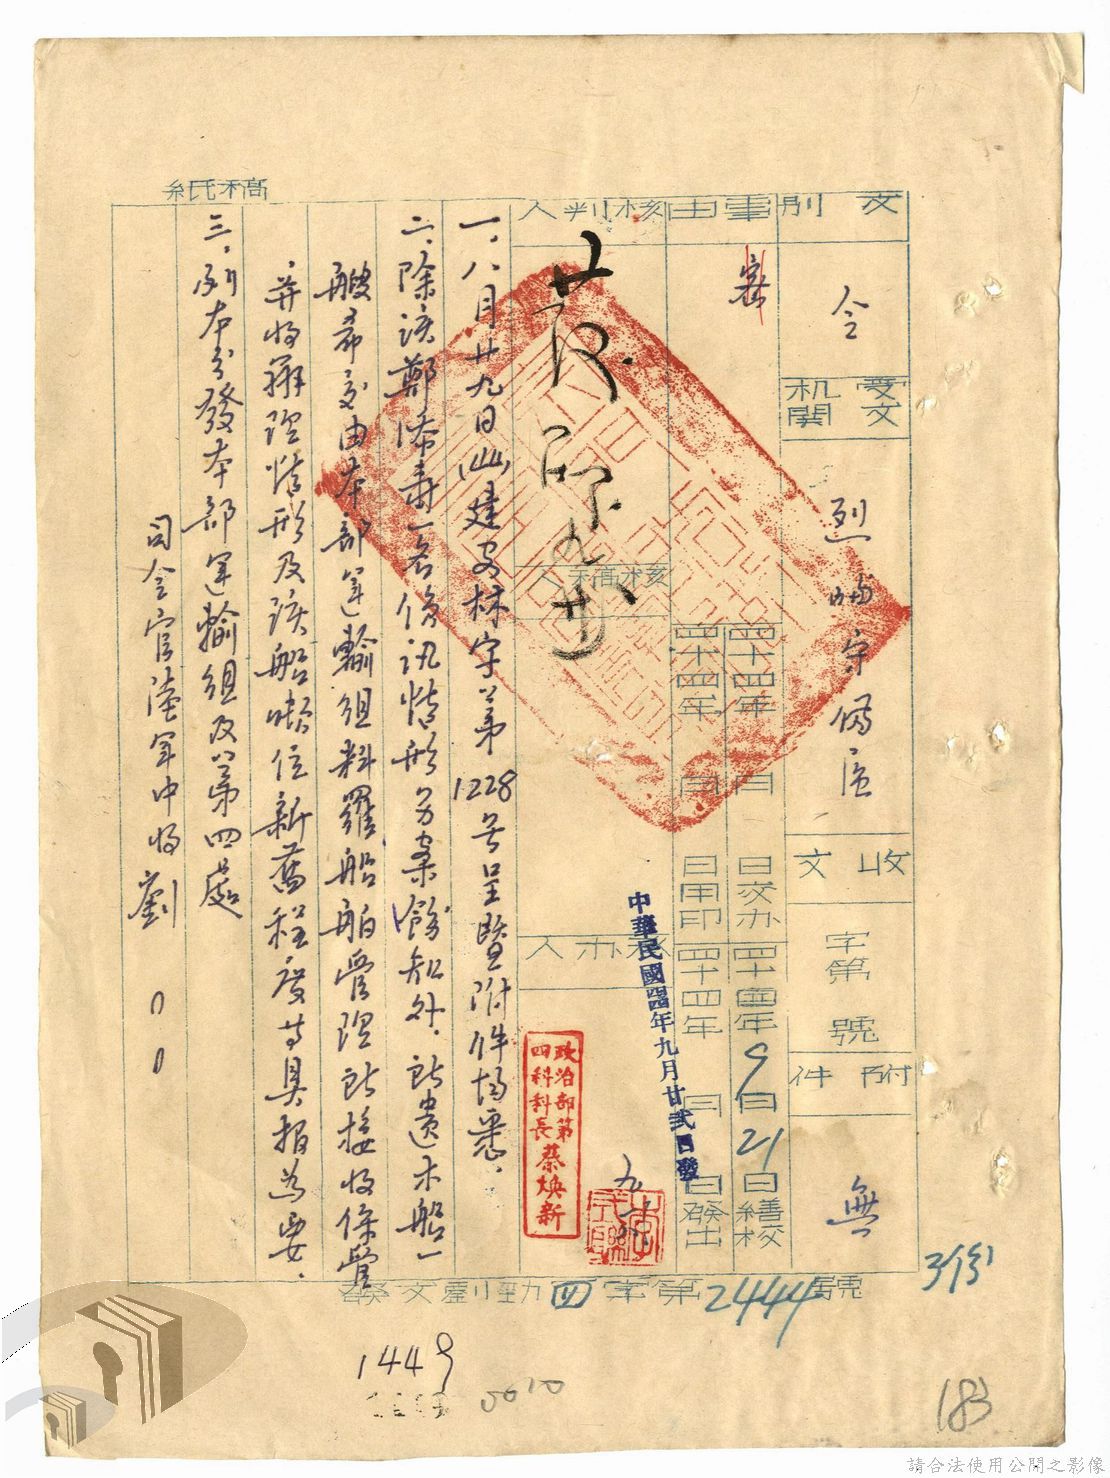 稿紙
文別
令
受文
机關
烈嶼守備區
收文
字第 號
附件
無
事由
密
四十四年 月 日交办
四十四年9月21日繕校
四十四年 月 日用印
四十四年 月 日發出
中華民國四四年九月廿貳日發
核判人
核稿人
承办人
政治部第
四科科長 蔡煥新
一、八月廿九日(44)建安林字第1228号呈暨附件均悉.
二、除該鄭
壽一名偵訊情形另案飭知外,所遺木船一
艘希交由本部運輸組料羅船舶管理所接收保管
,并將辦理情形及該船噸位新舊程度等具報為要.
三.副本分發本部運輸組及第四處
司令官陸軍中將劉○○
發文
字第2444號
3份
1449
0010
183
請合法使用公開之影像